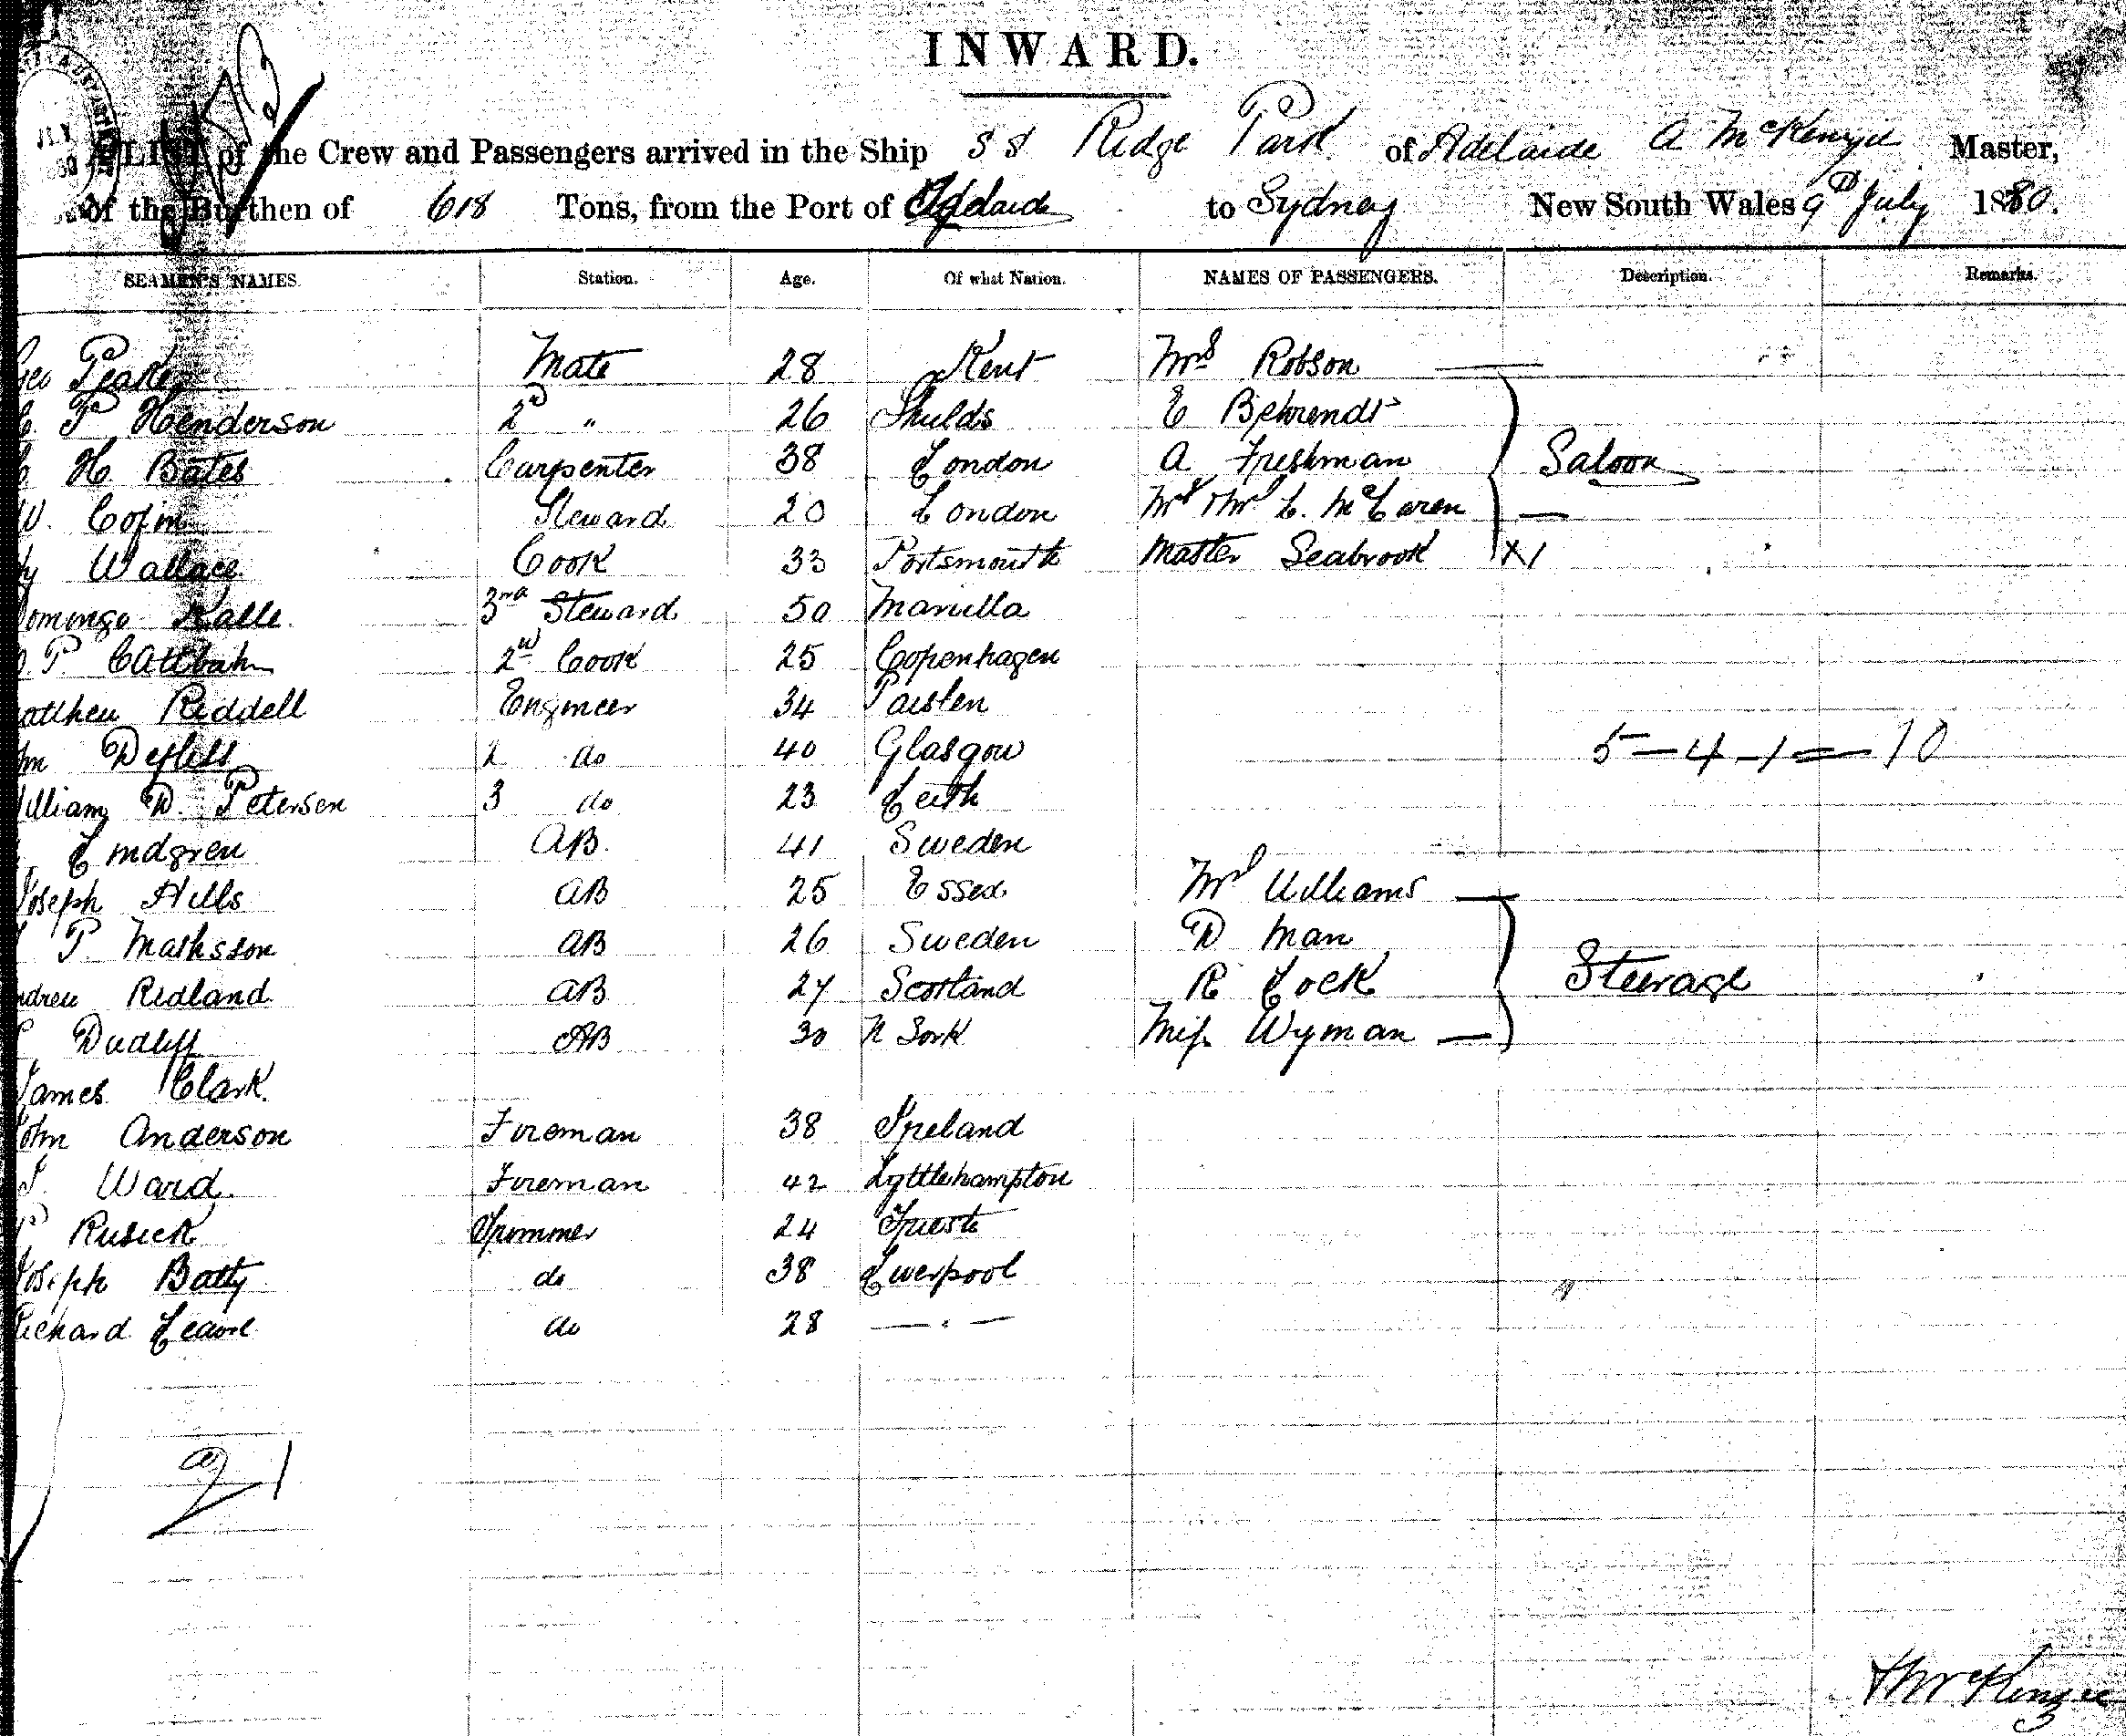 INWARD.
A LIST of the Crew and Passengers arrived in the Ship SS Ridge Park of Adelaide A McKenzie Master,
of the Burthen of 618 Tons, from the Port of Adelaide to Sydney New South Wales 9th July 1880.
SEAMEN'S NAMES. Station. Age. Of what Nation. NAMES OF PASSENGERS. Description. Remarks.
Geo Peake Mate 28 Kent Mrs Robson
P Henderson 2d " 26 Shulds E Behrendt
H Bates Carpenter 38 London A Freshman Saloon
W. Steward 20 London Mr & Mrs McLaren
Hy Wallace Cook 33 Portsmouth Master Seabrook X1
Domingo Kalle 3rd Steward 50 Manilla
P. 2nd Cook 25 Copenhagen
Matthew Riddell Engineer 34
2 do 40 Glasgow 5-4-1=10
William D. Petersen 3 do 23 Leith
Lindgren AB. 41 Sweden
Joseph Hills AB 25 Essex Mrs Williams
P. Mathsson AB 26 Sweden D Man
Andrew Ridland AB 27 Scotland R Lock Steerage
AB 30 N York Miss Wyman
James Clark
John Anderson Fireman 38 Ireland
Ward. Fireman 42 Lyttlehampton
Rusick Trimmer 24 Trieste
Joseph Batty do 38 Liverpool
Richard do 28 — " —
21
McKenzie